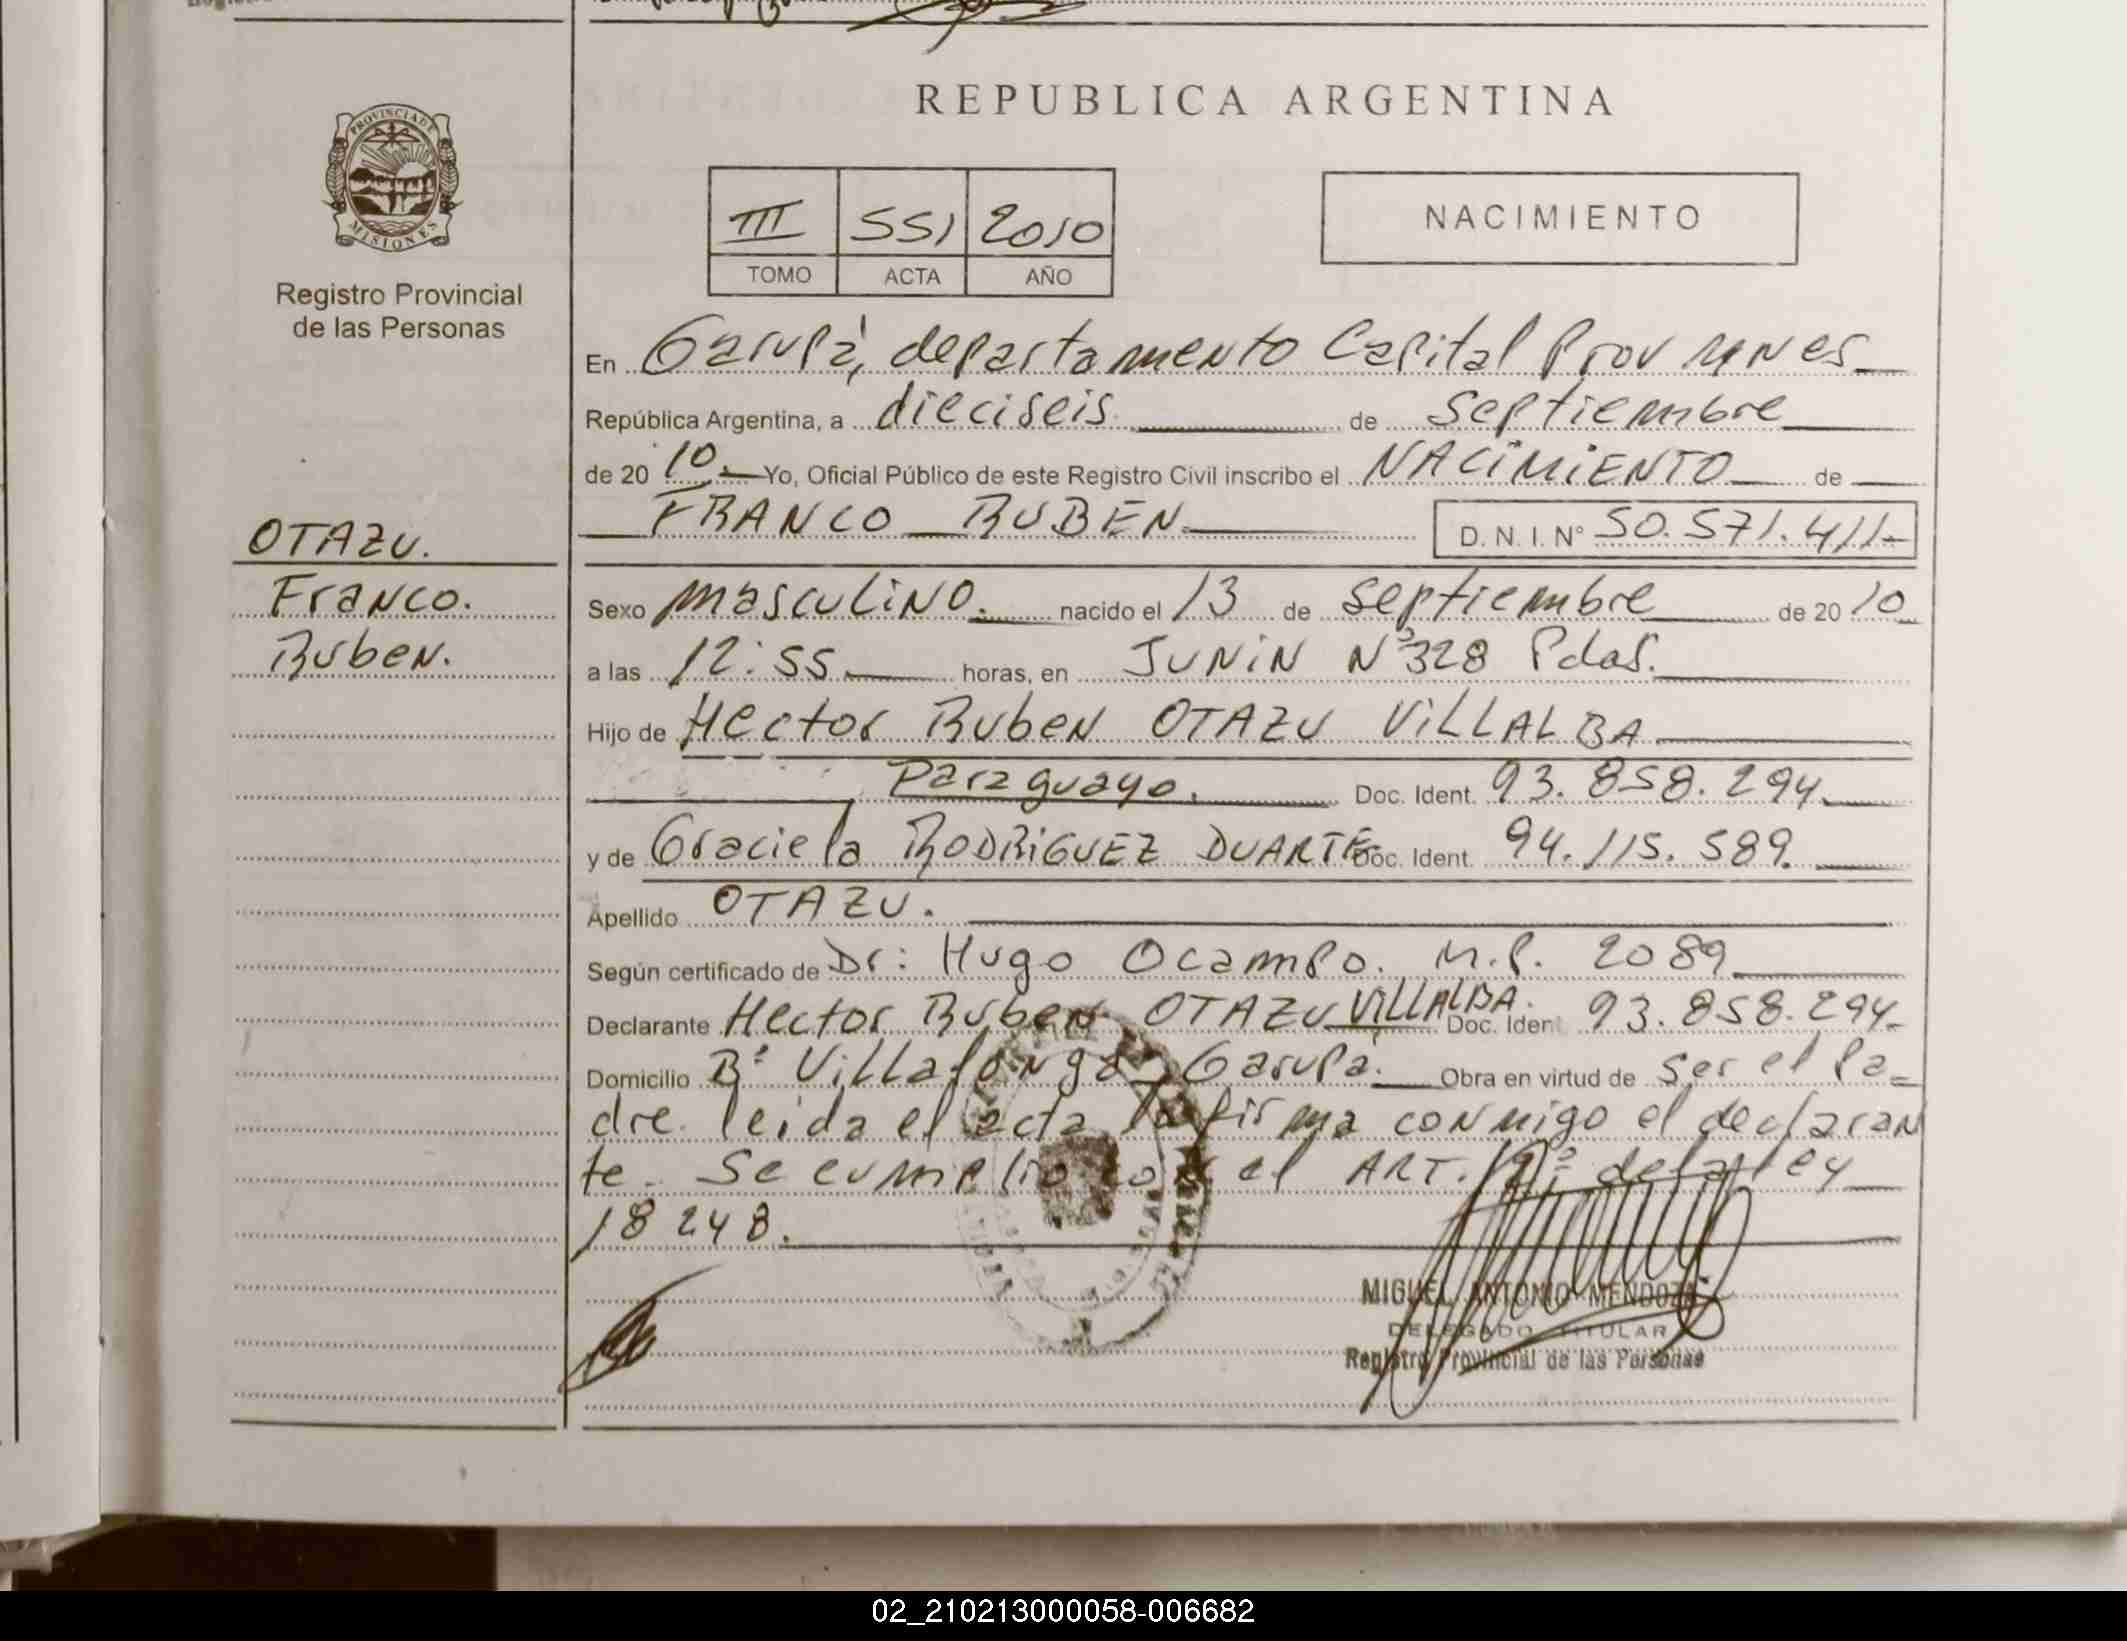 REPUBLICA ARGENTINA
PROVINCIA DE
MISIONES
Registro Provincial
de las Personas
III 551 2010
TOMO ACTA AÑO
NACIMIENTO
En Garupá, departamento Capital Prov
República Argentina, a dieciseis de Septiembre
de 20 10. Yo, Oficial Público de este Registro Civil inscribo el NACIMIENTO de
FRANCO RUBEN D. N. I. N° 50.571.411-
OTAZU.
Franco.
Ruben.
Sexo masculino. nacido el 13 de septiembre de 20 10
a las 12:55 horas, en JUNIN N° 328 Pdas.
Hijo de Hector Ruben OTAZU VILLALBA
Paraguayo. Doc. Ident. 93.858.294
y de Graciela RODRIGUEZ DUARTE Doc. Ident. 94.115.589.
Apellido OTAZU.
Según certificado de Dr: Hugo Ocampo. M.P. 2089
Declarante Hector Ruben OTAZU VILLALBA. Doc. Iden 93.858.294-
Domicilio B° Villalonga, Garupá. Obra en virtud de ser el Pa-
dre. leida el acta la firma conmigo el declaran
te. Se cumplio con el ART. de la ley
18248.
MIGUEL ANTONIO MENDOZA
DELEGADO TITULAR
Registro Provincial de las Personas
02_210213000058-006682